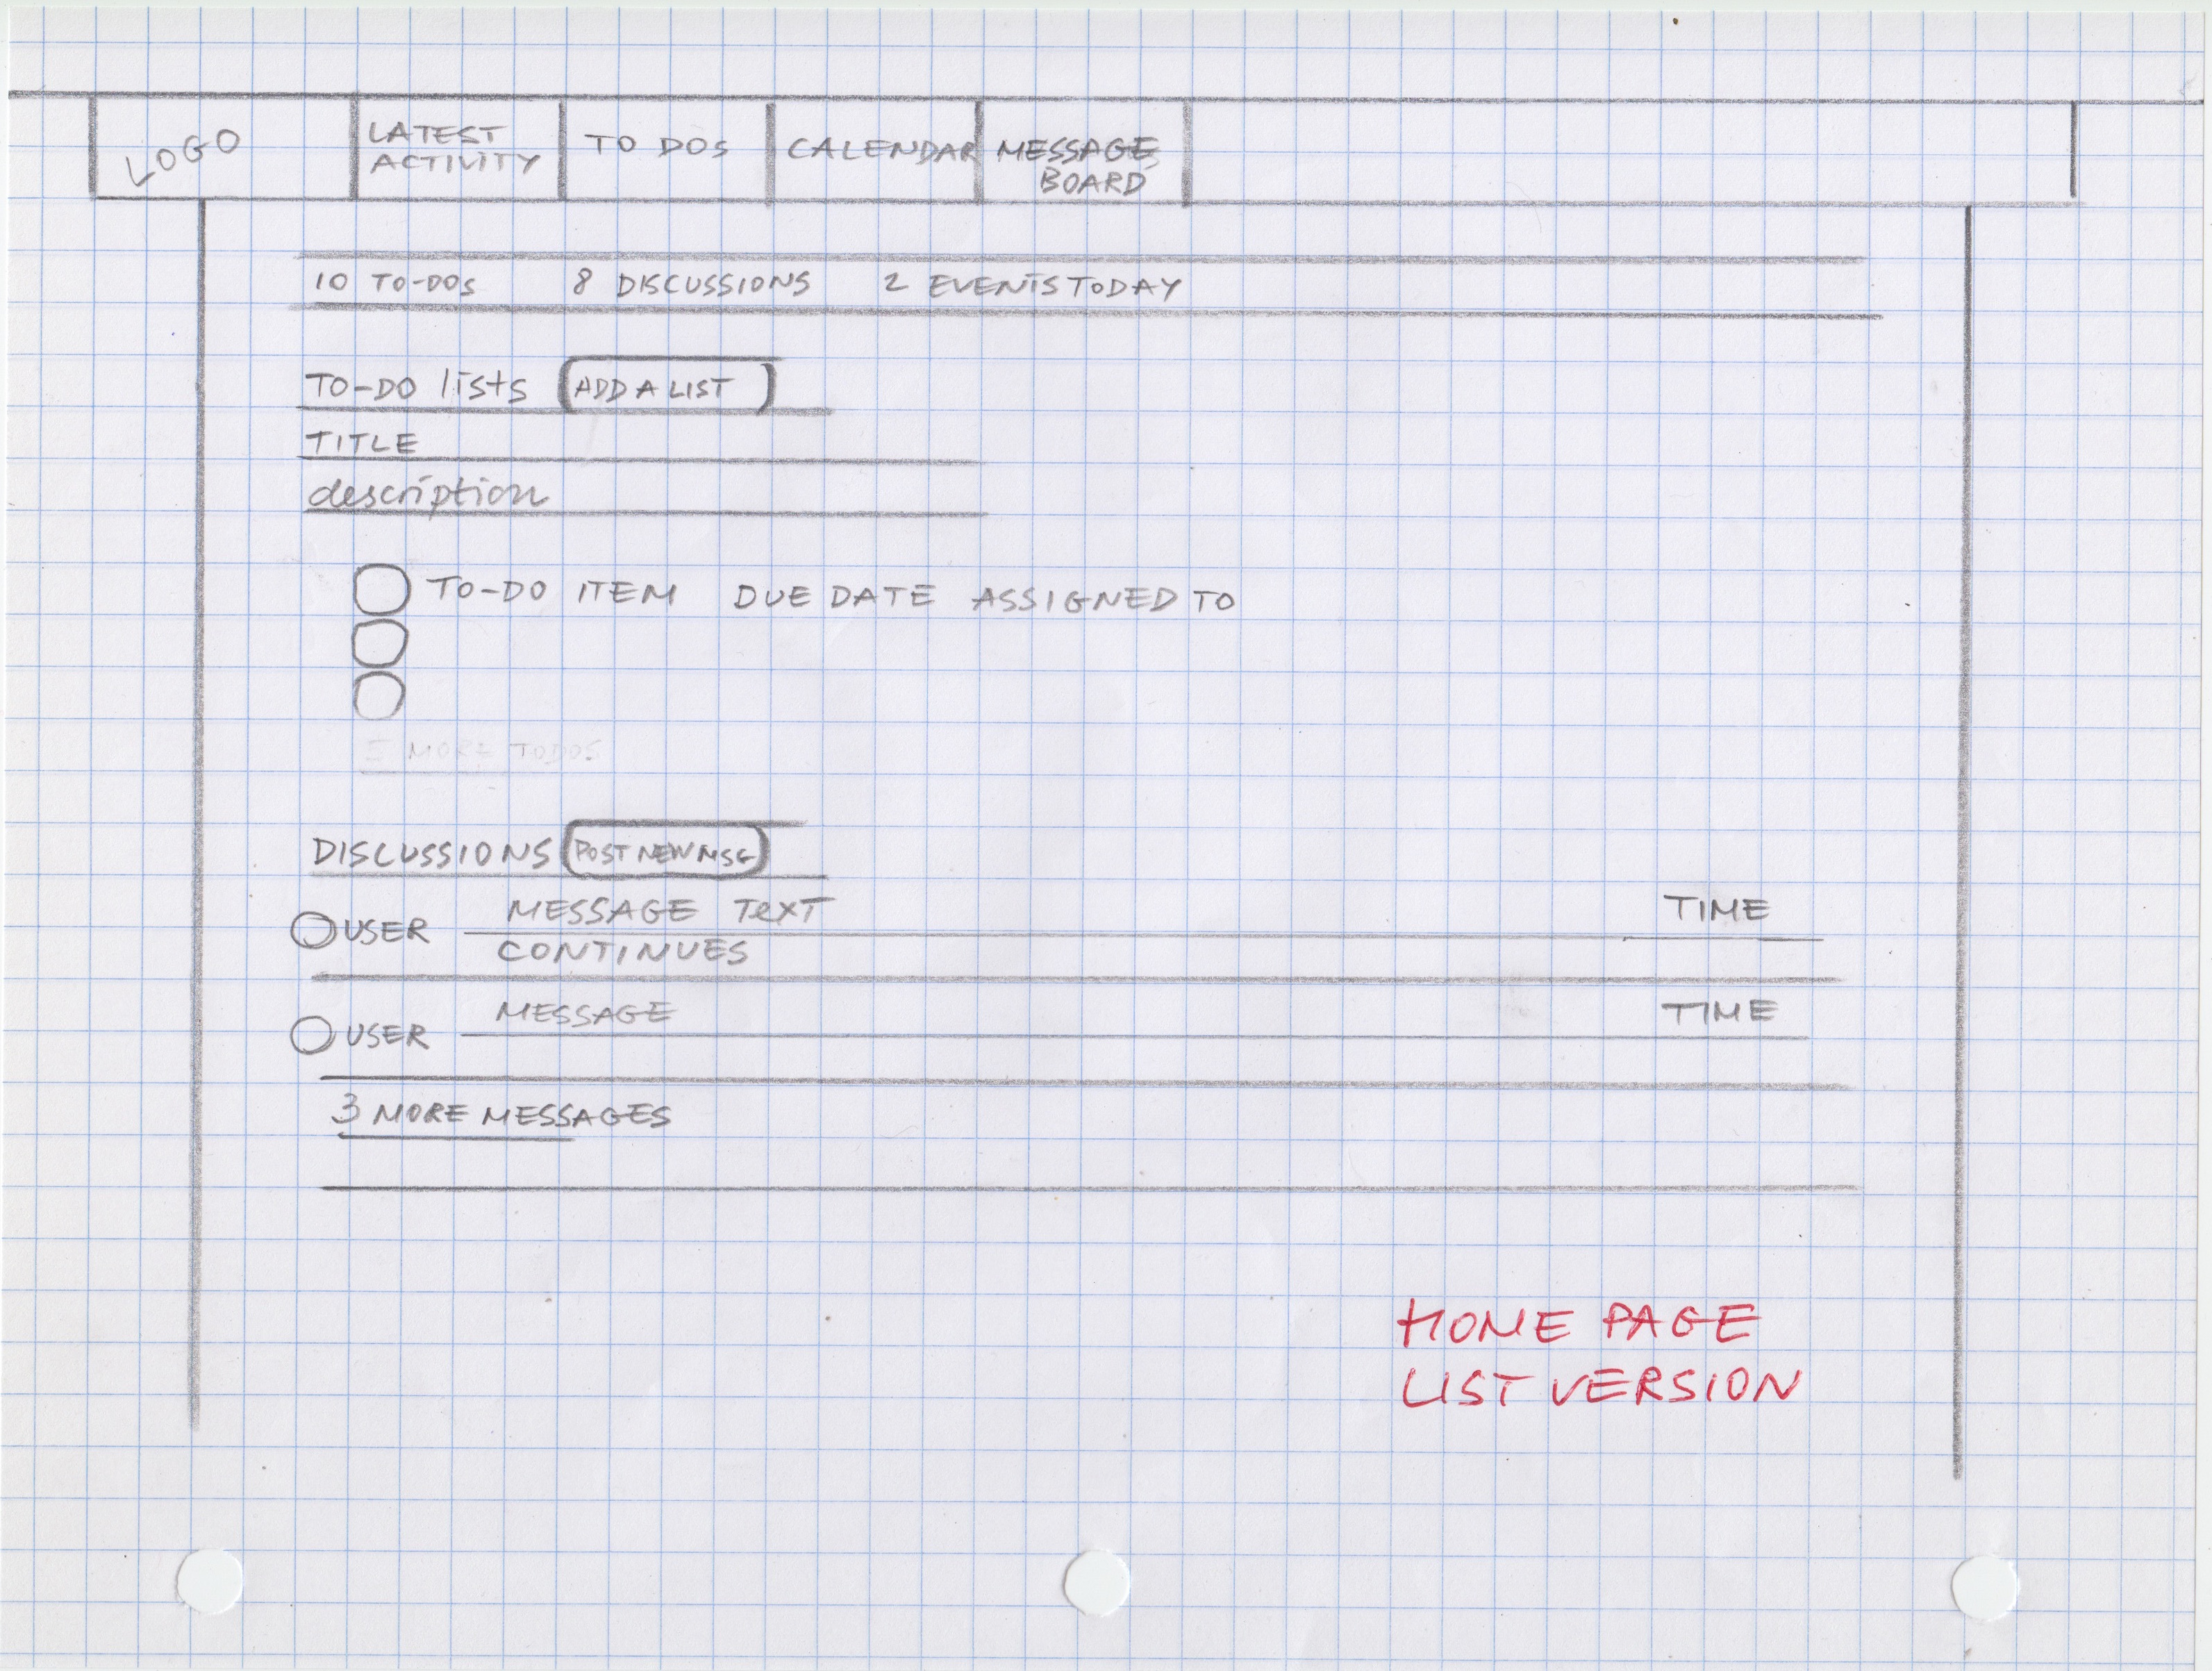 LOGO
LATEST
ACTIVITY
TO DOS
CALENDAR
MESSAGE
BOARD
10 TO-DOS 8 DISCUSSIONS 2 EVENTS TODAY
TO-DO lists ADD A LIST
TITLE
description
TO-DO ITEM DUE DATE ASSIGNED TO
MORE TODOS
DISCUSSIONS POST NEW MSG
USER MESSAGE TEXT TIME
CONTINUES
USER MESSAGE TIME
3 MORE MESSAGES
HOME PAGE
LIST VERSION